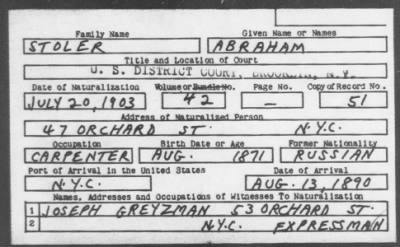 Family Name Given Name or Names
STOLER ABRAHAM
Title and Location of Court
U. S. DISTRICT COURT, BROOKLYN, N.Y.
Date of Naturalization Volume or Bundle No. Page No. Copy of Record No.
JULY 20, 1903 42 — 51
Address of Naturalized Person
47 ORCHARD ST. N.Y.C.
Occupation Birth Date or Age Former Nationality
CARPENTER AUG. 1871 RUSSIAN
Port of Arrival in the United States Date of Arrival
N.Y.C. AUG. 13, 1890
Names, Addresses and Occupations of Witnesses To Naturalization
1 JOSEPH GREYZMAN 53 ORCHARD ST.
2 N.Y.C. EXPRESSMAN